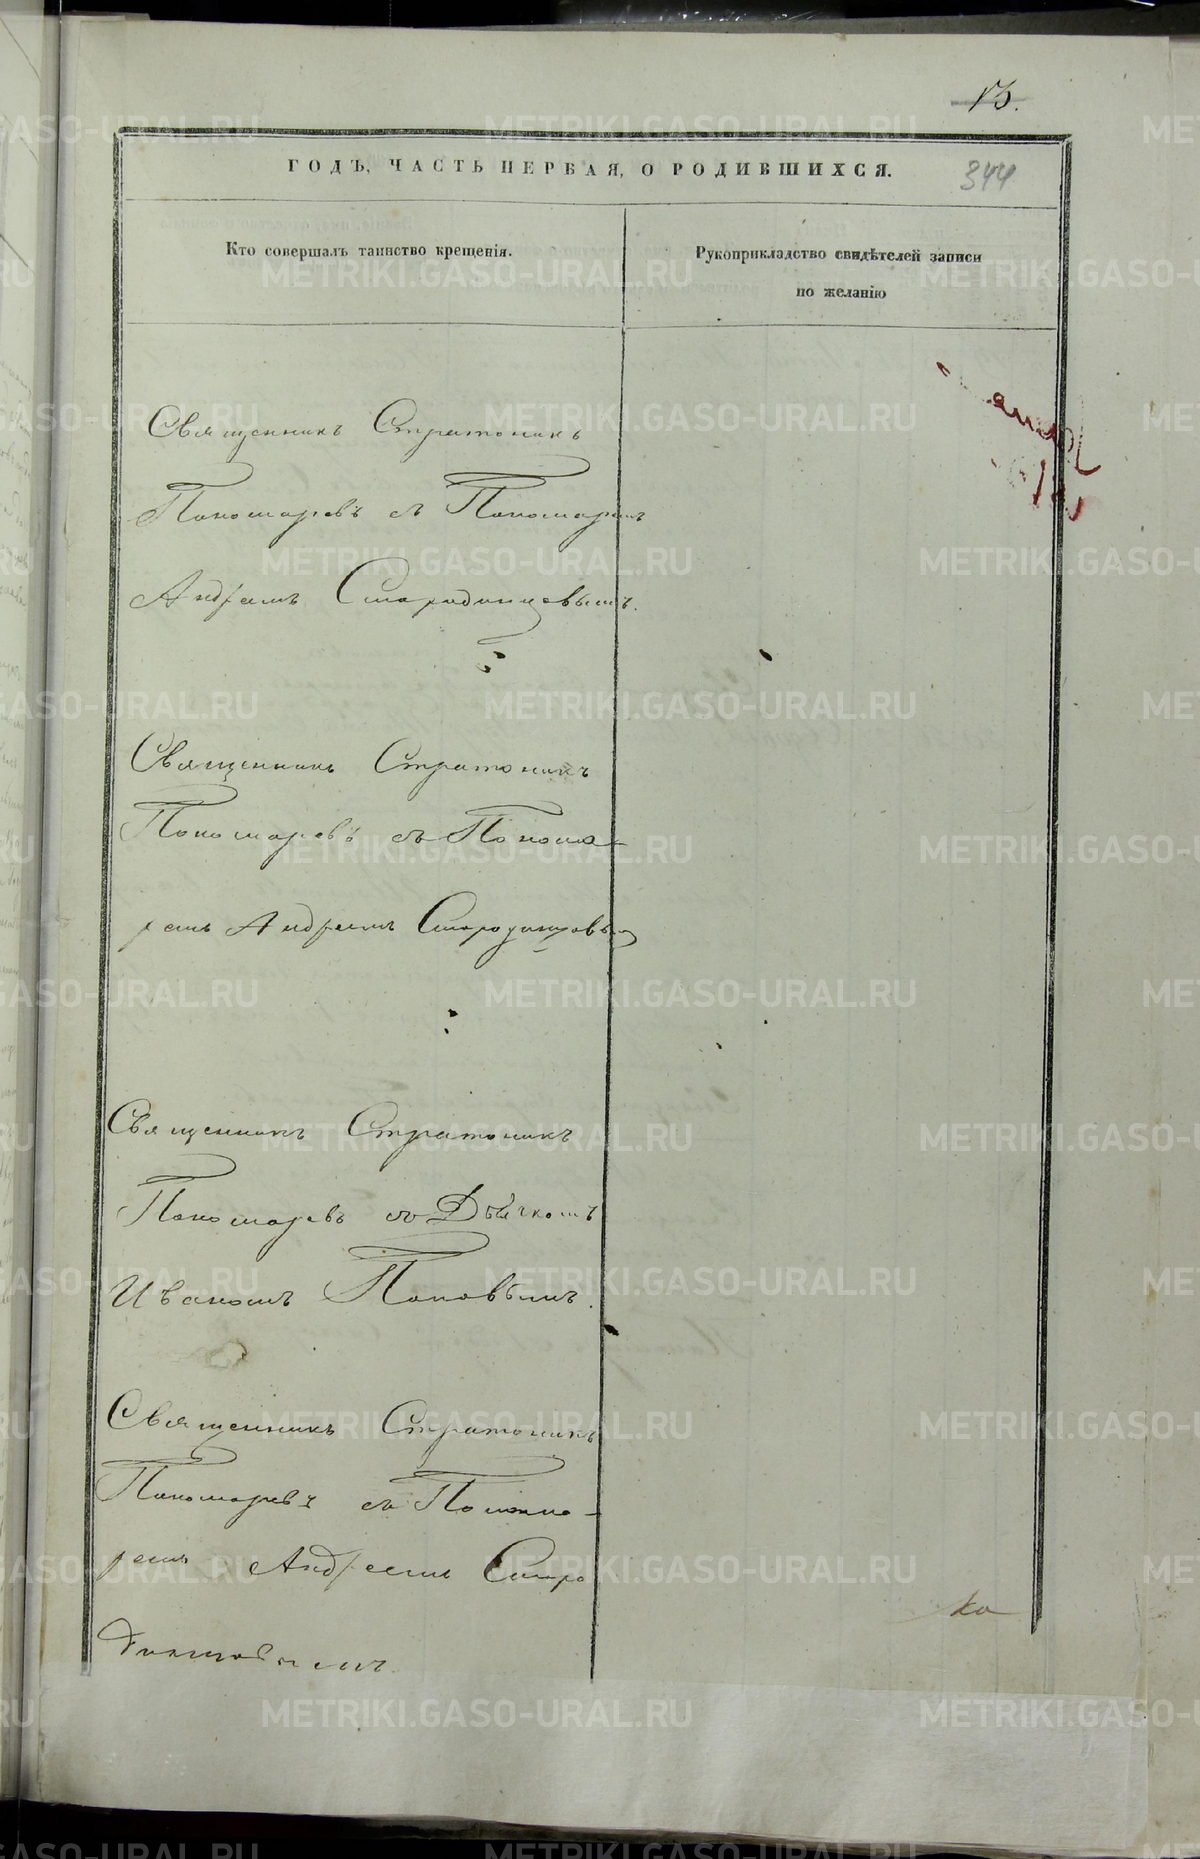 13.
ГОДЪ, ЧАСТЬ ПЕРВАЯ, О РОДИВШИХСЯ.
344
Кто совершалъ таинство крещенія.
Рукоприкладство свидѣтелей записи
по желанію
Священникъ Стратоникъ
Пономаревъ съ Пономаремъ
Андреемъ Стародинцевымъ.
Священникъ Стратоникъ
Пономаревъ съ Понома-
ремъ Андреемъ Стародинцовы
Священникъ Стратоникъ
Пономаревъ съ Дьячкомъ
Иваномъ Поповымъ.
Священникъ Стратоникъ
Пономаревъ съ Понома-
ремъ Андреемъ Старо
динцовымъ.
METRIKI.GASO-URAL.RU